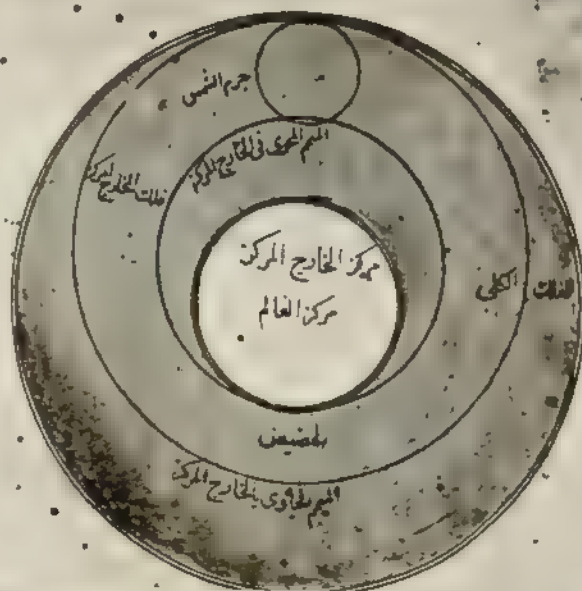 جرم الشمس
المتمم المحوى فى الخارج المركز
فلك الخارج المركز
مركز الخارج المركز
مركز العالم
الفلك الكلى
الحضيض
المتمم الحاوى بالخارج المركز